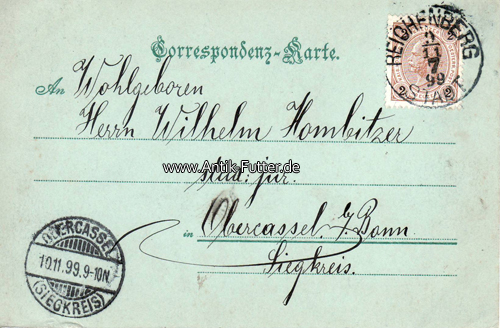 Correspondenz-Karte.
REICHENBERG
11
99
STADT
2 2
An Wohlgeboren
Herrn Wilhelm Hombitzer
stud. jur.
www.Antik-Futter.de
in Obercassel b/Bonn
Siegkreis.
OBERCASSEL
10.11.99.9-10N.
(SIEGKREIS)